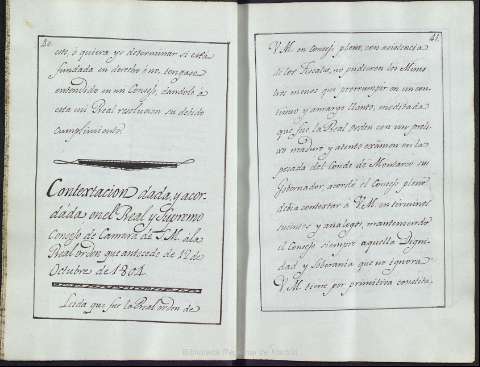 40.
este, ó quiera yo determinar si está
fundada en derecho ó no, tengase
entendido en mi Consejo, dandole á
esta mi Real resolucion su debido
cumplimiento
Contextacion dada, y acor-
dada en el Real, y Supremo
Consejo de Camara de S.M. á la
Real orden que antecede de 12 de
Octubre de 1804.
Leida que fue la Real orden de
41.
V.M. en Consejo pleno, con asistencia
de los Fiscales, no pudieron los Minis-
tros menos que prorrumpir en un con-
tinuo y amargo llanto, meditada
que fue la Real orden con un proli-
xo maduro y atento exâmen en la
posada del Conde de Montarco su
Governador, acordó el Consejo pleno
debia contextar á V.M. en terminos
sucintos y analogos, manteniendo
el Consejo siempre aquella Digni-
dad y Soberania que no ignora
V.M. tiene por primitiva constitu-
Biblioteca Regional de Madrid